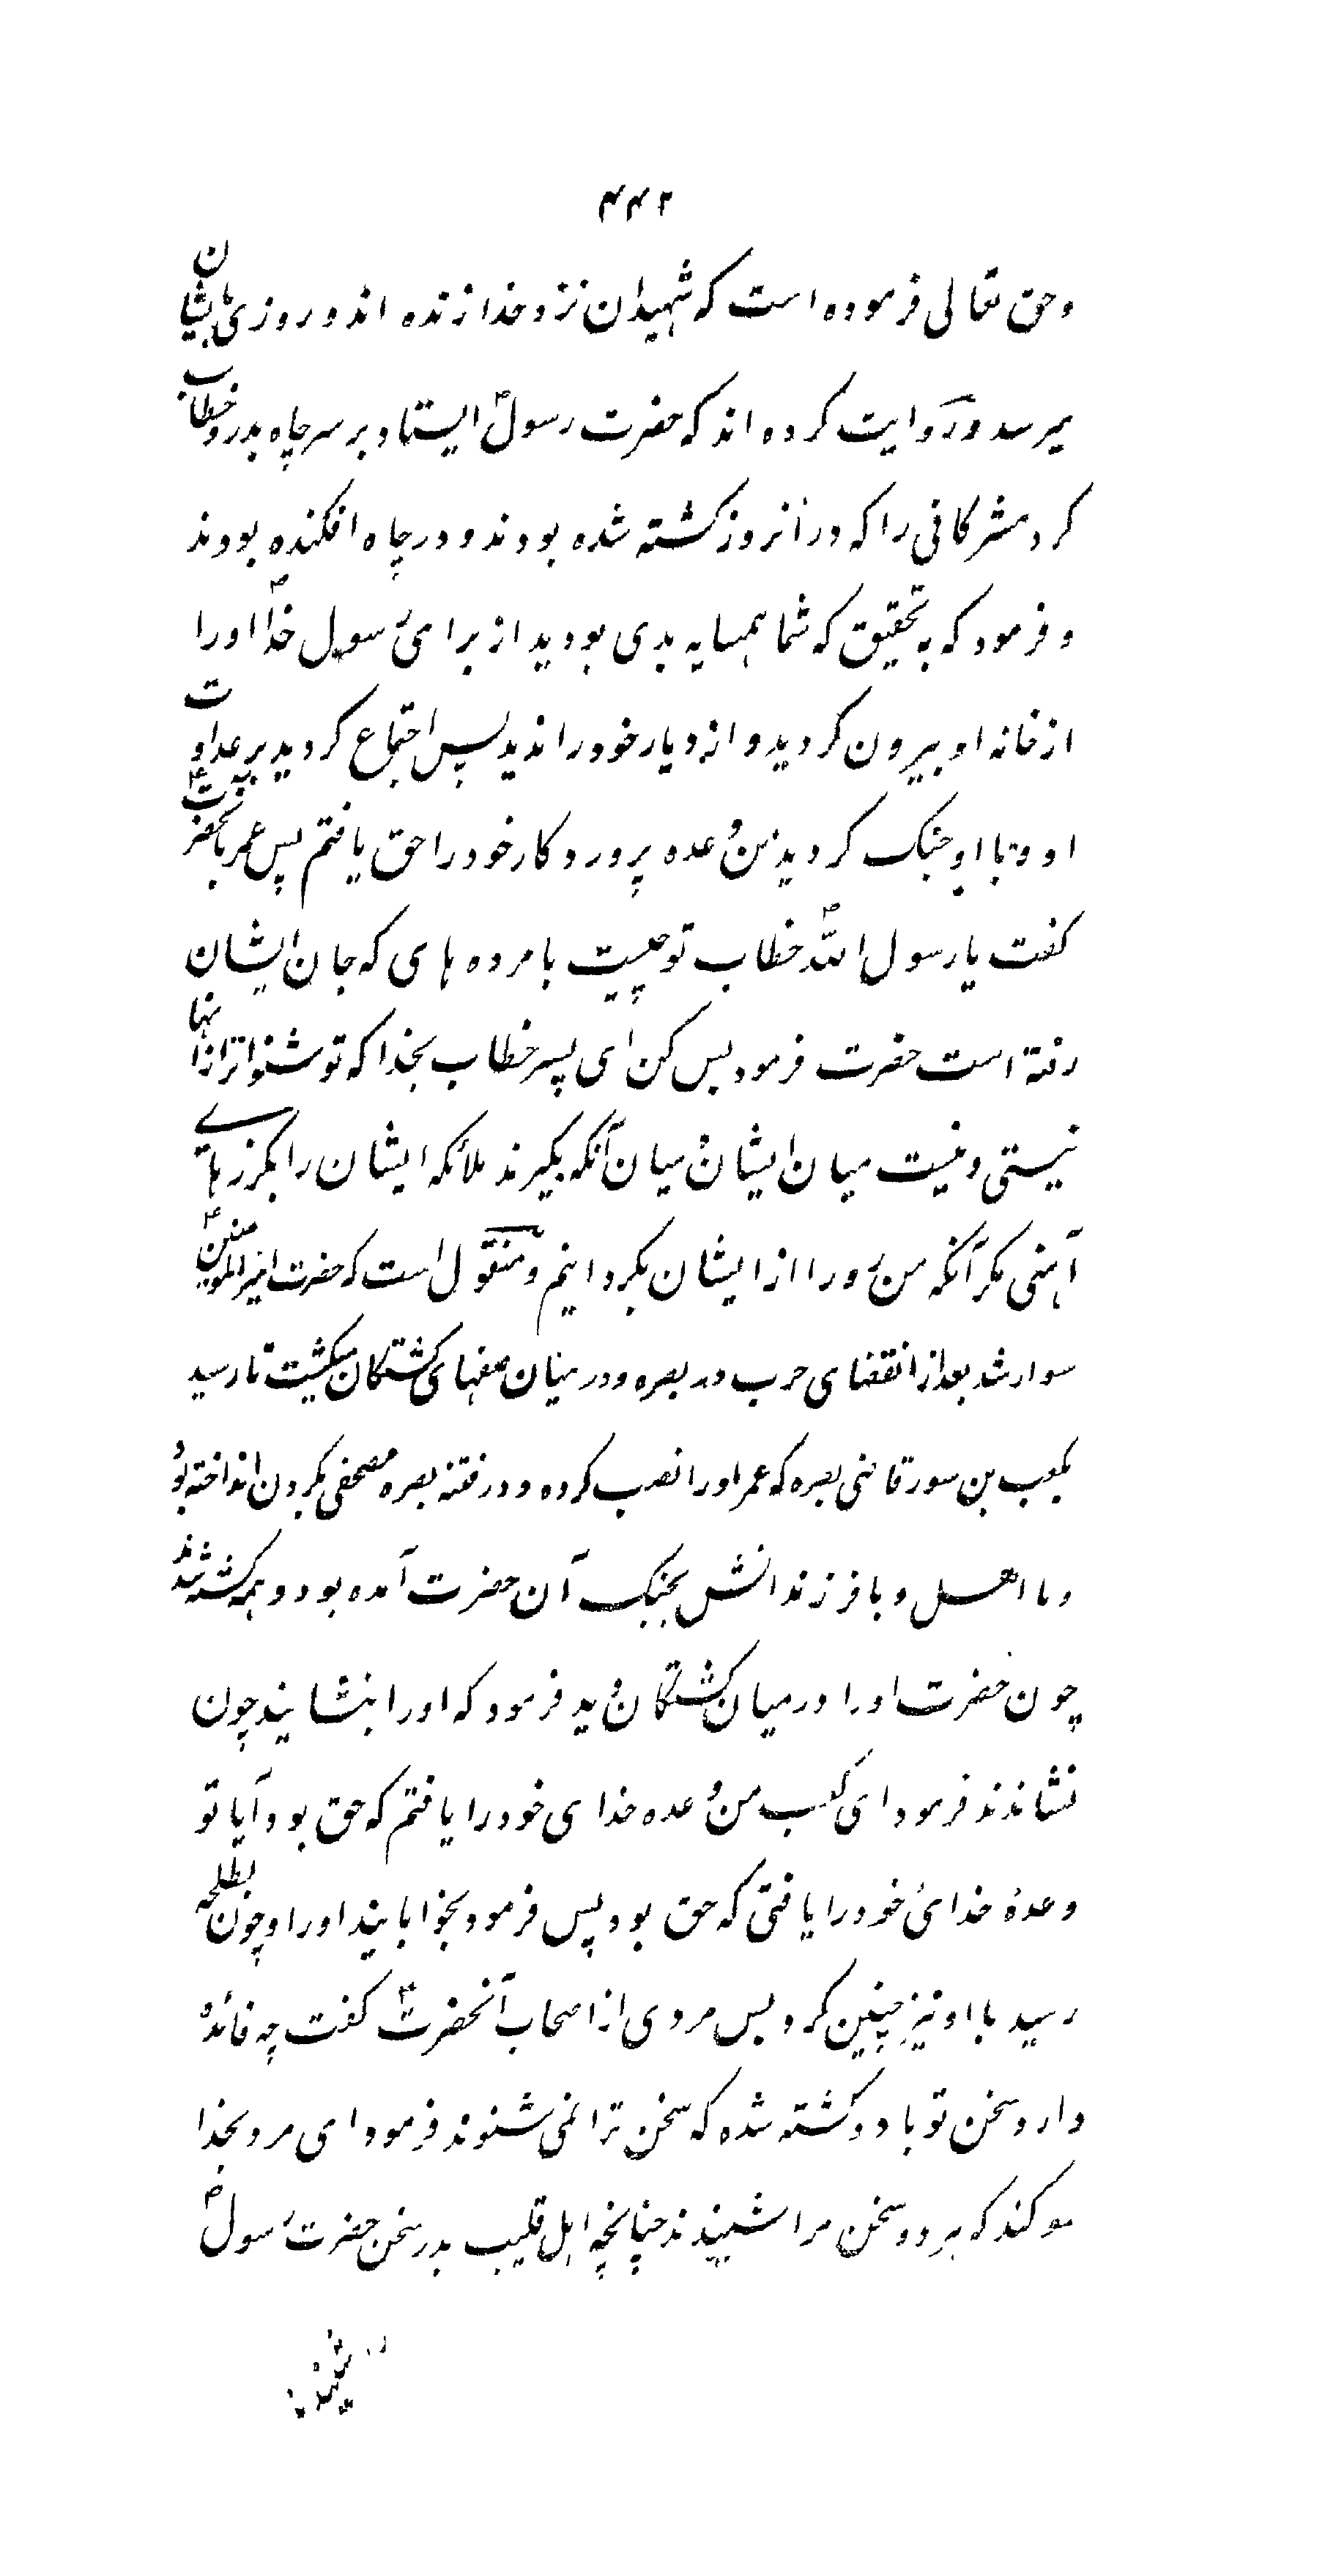 ۴۴۲
وحق تعالی فرموده است که شهیدان نزد خدا زنده اند و روزی بایشان
میرسد و روایت کرده اند که حضرت رسولؐ ایستاد بر سر چاه بدر و خطاب
کرد مشرکانی را که در آنروز کشته شده بودند و در چاه افکنده بودند
و فرمود که به تحقیق که شما همسایه بدی بودید از برای رسول خداؐ او را
از خانه او بیرون کردید و از دیار خود راندید پس اجتماع کردید بر عداوت
او و با او جنک کردید من وعده پروردکار خود را حق یافتم پس عمر بآنحضرتؐ
کفت یا رسول اللهؐ خطاب تو چیست با مرده های که جان ایشان
رفته است حضرت فرمود بس کن ای پسر خطاب بخدا که تو شنواتر از آنها
نیستی و نیست میان ایشان و میان آنکه بکیرند ملائکه ایشان را بکرزهای
آهنی مکر آنکه من رو را از ایشان بکردانیم و منقول است که حضرت امیرالمومنینؑ
سوار شد بعد از انقضای حرب در بصره و در میان صفهای کشتکان میکشت تا رسید
بکعب بن سور قاضی بصره که عمر او را نصب کرده و در فتنه بصره مصحفی بکردن انداخته بود
و با اهل و با فرزندانش بجنک آن حضرت آمده بود و همه کشته شدند
چون حضرت او را در میان کشتکان دید فرمود که او را بنشانید چون
نشاندند فرمود ای کعب من وعده خدای خود را یافتم که حق بود آیا تو
وعدهٔ خدای خود را یافتی که حق بود پس فرمود بخوابانید او را و چون بطلحه
رسید با او نیز چنین کرد پس مردی از اصحاب آنحضرتؑ کفت چه فائده
دارد سخن تو با دو کشته شده که سخن ترا نمی شنوند فرمود ای مرد بخدا
سوکند که هر دو سخن مرا شنیدند چنانچه اهل قلیب بدر سخن حضرت رسولؐ